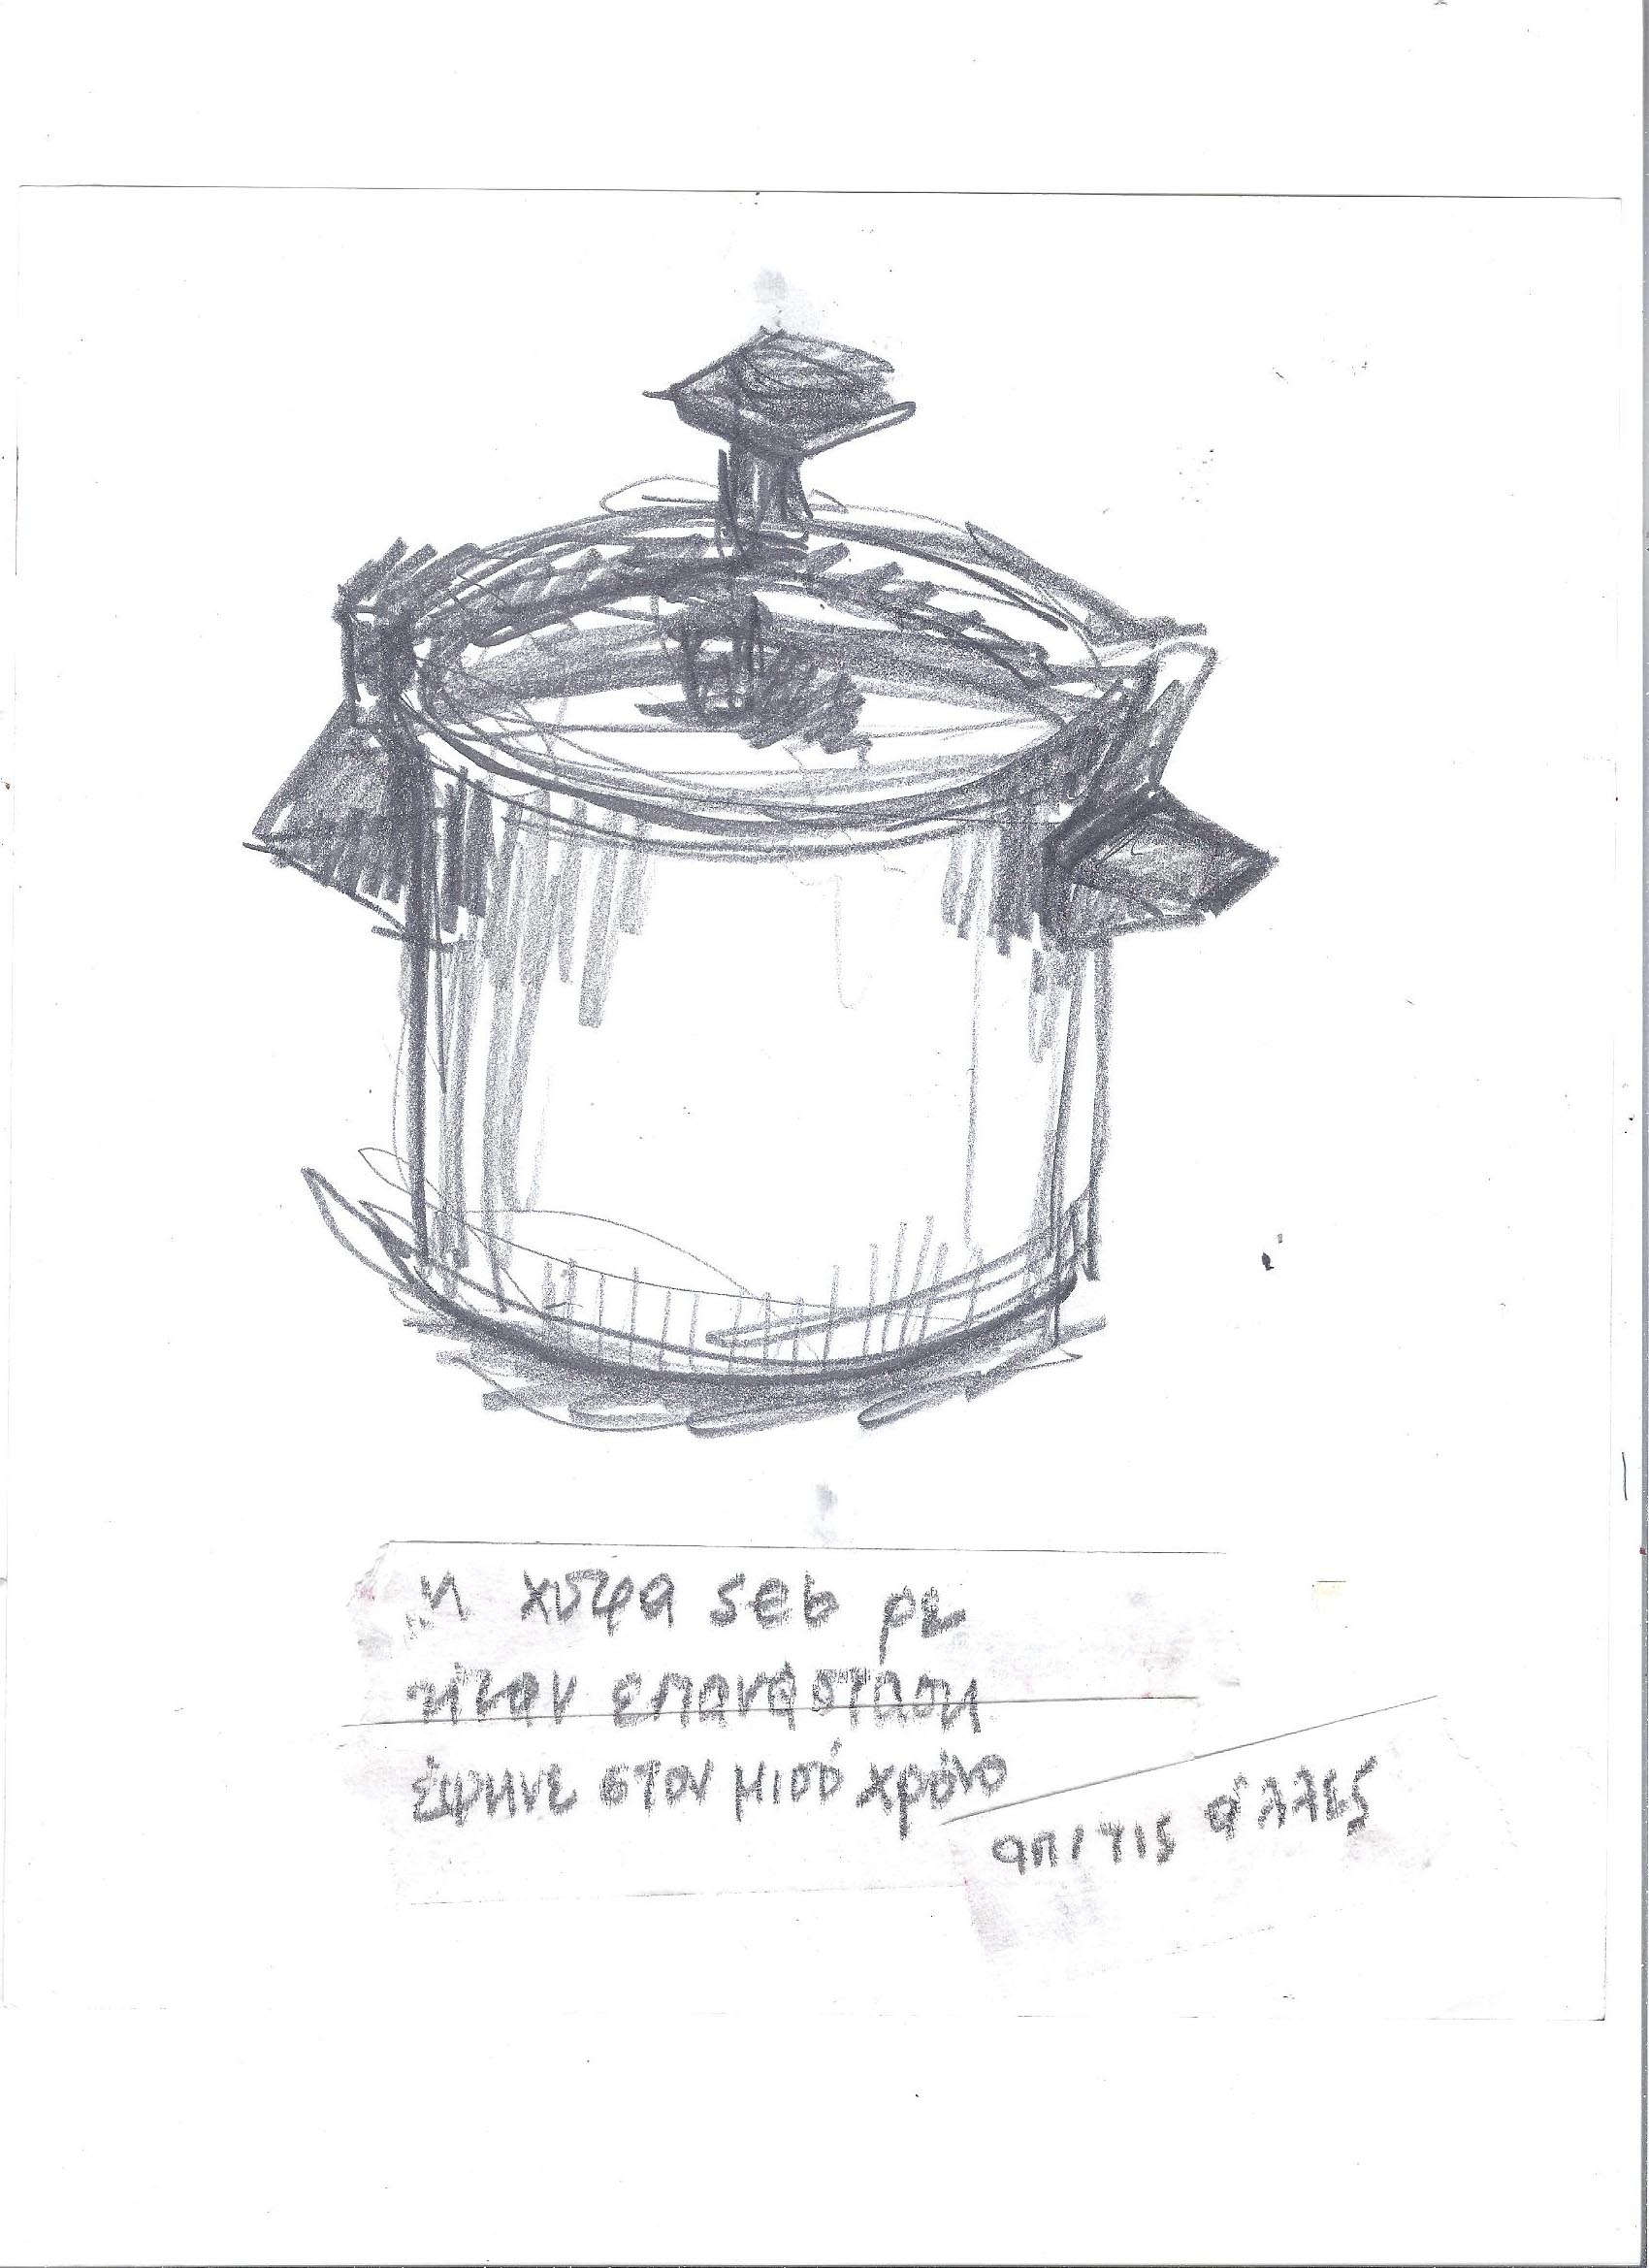 „η χύτρα seb με
ήταν επανάσταση
έψηνε στον μισό χρόνο
απ' τις άλλες